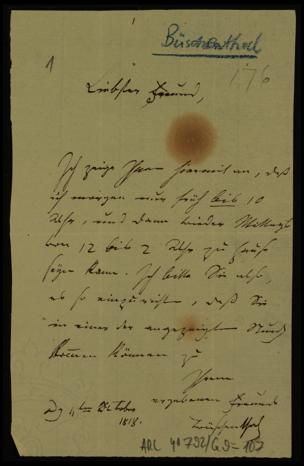 Büschenthal
1
176
Liebster Freund,
Ich zeige Ihnen hiermit an, daß
ich morgen nur früh bis 10
Uhr, und dann wieder Mittags
von 12 bis 2 Uhr zu Hause
seyn kann. Ich bitte Sie also,
es so einzurichten, daß Sie
in einer der angezeigten Stunden
kommen können zu
Ihrem
ergebenen Freunde
Büschenthal
D. 11ten October
1818.